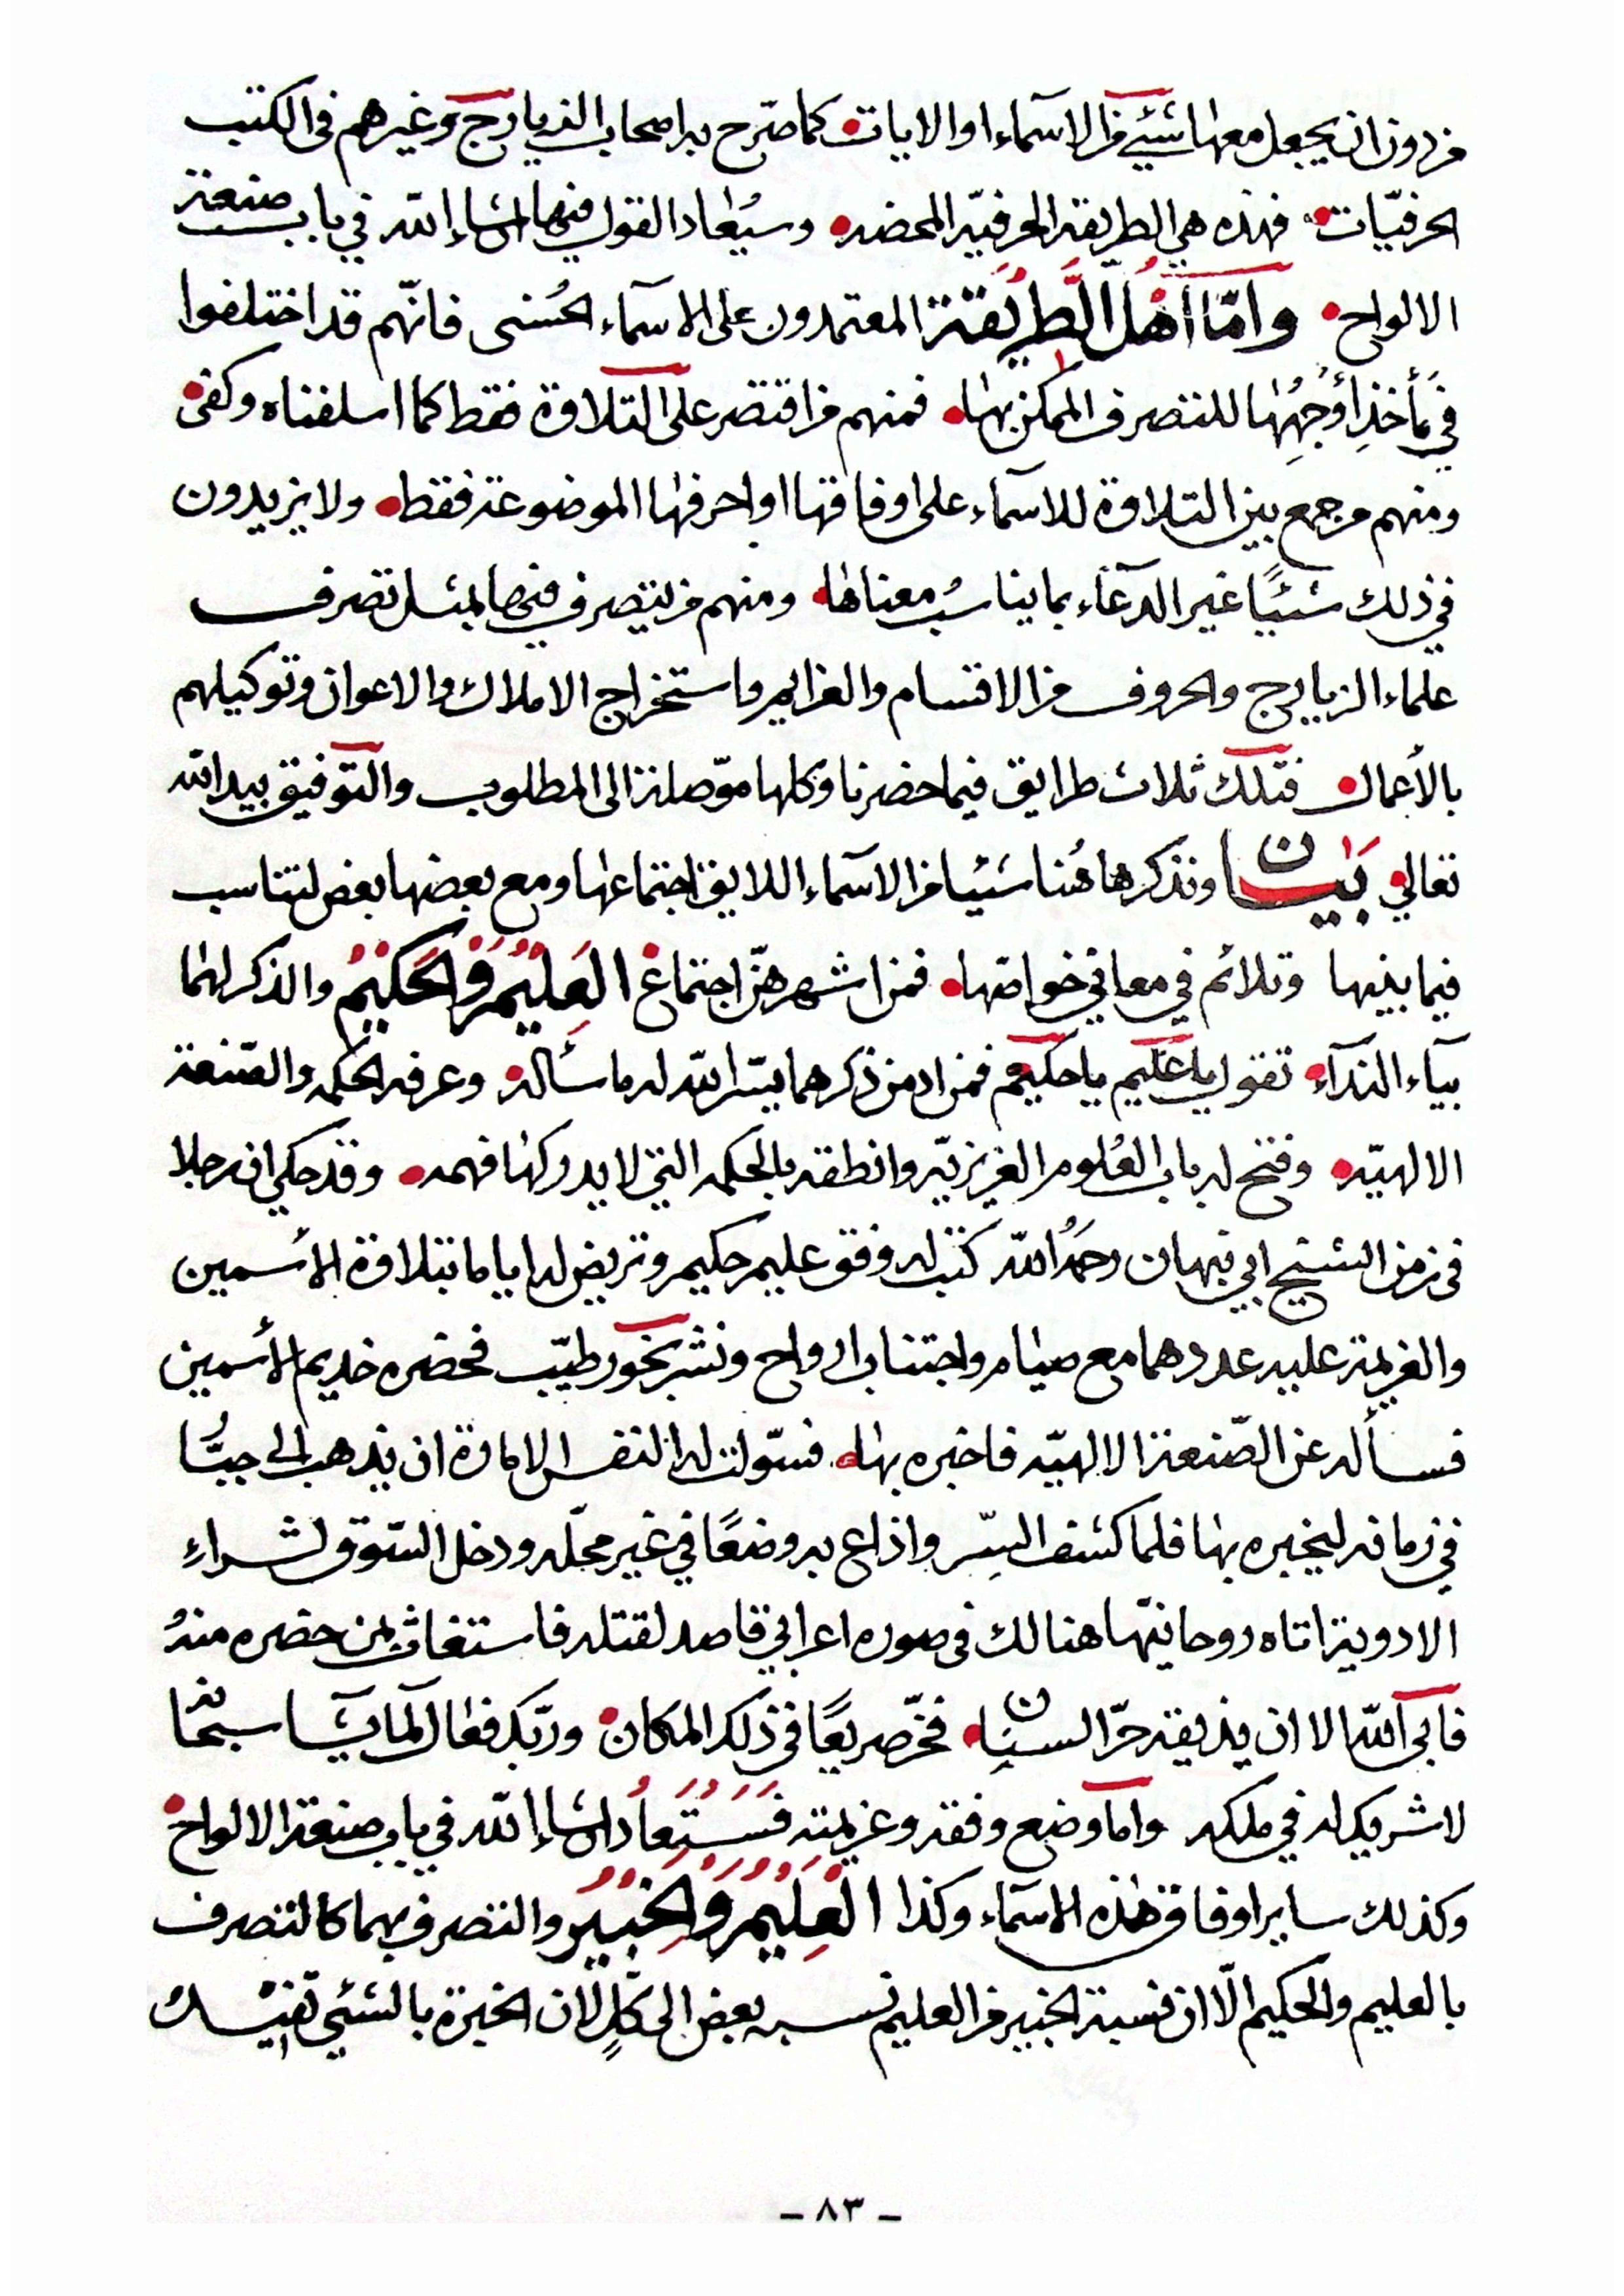 من دون ان يجعل معها شيئ من الاسماء او الايات كما صرّح به اصحاب الزيارج وغيرهم فى الكتب
الحرفيّات فهذه هي الطريقة الحرفيّه المحضه وسيُعاد القول فيها انشاء الله في باب صنعة
الالواح وامّا اهل الطّريقة المعتمدون على الاسماء الحُسنى فانّهم قد اختلفوا
في مأخذ أوجُهِها للتصرف الممكن بها فمنهم من اقتصر على التلاوة فقط كما اسلفناه وكفى
ومنهم من جمع بين التلاوة للاسماء على اوفاقها او احرفها الموضوعة فقط ولا يزيدون
في ذلك شيئًا غير الدعاء بما يناسبُ معناها ومنهم من يتصرف فيها بمثل تصرف
علماء الزيارج والحروف من الاقسام والعزايم واستخراج الاملاك والاعوان وتوكيلهم
بالأعمال فتلك ثلاث طرايق فيما حضرنا وكلها موّصلة الى المطلوب والتوفيق بيد الله
تعالي بَيان ونذكر هاهُنا شيئا من الاسماء اللايق اجتماعها ومع بعضها بعض لتناسب
فيما بينها وتلائم في معاني خواصّها فمن اشهرهنّ اجتماع العَلِيْمُ وَالحَكِيْمُ والذكر لهما
بيآء الندآء تقول يا عليم يا حكيم فمن ادمن ذكرهما يسّر الله له ما سأله وعرفه الحكمه والصّنعة
الالهيّه وفتح له باب العُلوم الغزيزيّه وانطقه بالحكمه التي لا يدركها فهمه وقد حكي ان رجلا
فى زمن الشيخ ابي نبهان رحمهُ الله كتب له وفق عليم حكيم وتريض له اياما بتلاوة الأسمين
والعزيمة عليه عددهما مع صيام واجتناب ارواح ونشر بخور طيّب فحضره خديم الأسمين
فسأله عن الصّنعة الالهيّه فاخبره بها فسوّلت له النفس الامارة ان يذهب الى جبّا
في زمانه ليخبره بها فلما كشف السِّر واذاع به وضعًا في غير محلّه ودخل السّوق لشراءِ
الادوية اتاه روحانيّها هنالك فى صوره اعرابي قاصد لقتله فاستغاث بمن حضره منهُ
فابى الله الا ان يذيقه حرّ السنان فخرّ صريعًا فى ذلك المكان وربّك فعال لما يشا سبحانه
لا شريك له في ملكه واما وضع وفقه وعزيمته فَسَتُعَادُ انشاء الله في باب صنعة الالواح
وكذلك ساير اوفاق هذه الاسماء وكذا العَلِيْمُ وَالخَبِيْرُ والتصرف بهما كالتصرف
بالعليم والحكيم الّا ان نسبة الخبير من العليم نسبه بعض الى كلٍّ لان الخبرة بالشئي
- ٨٣ -